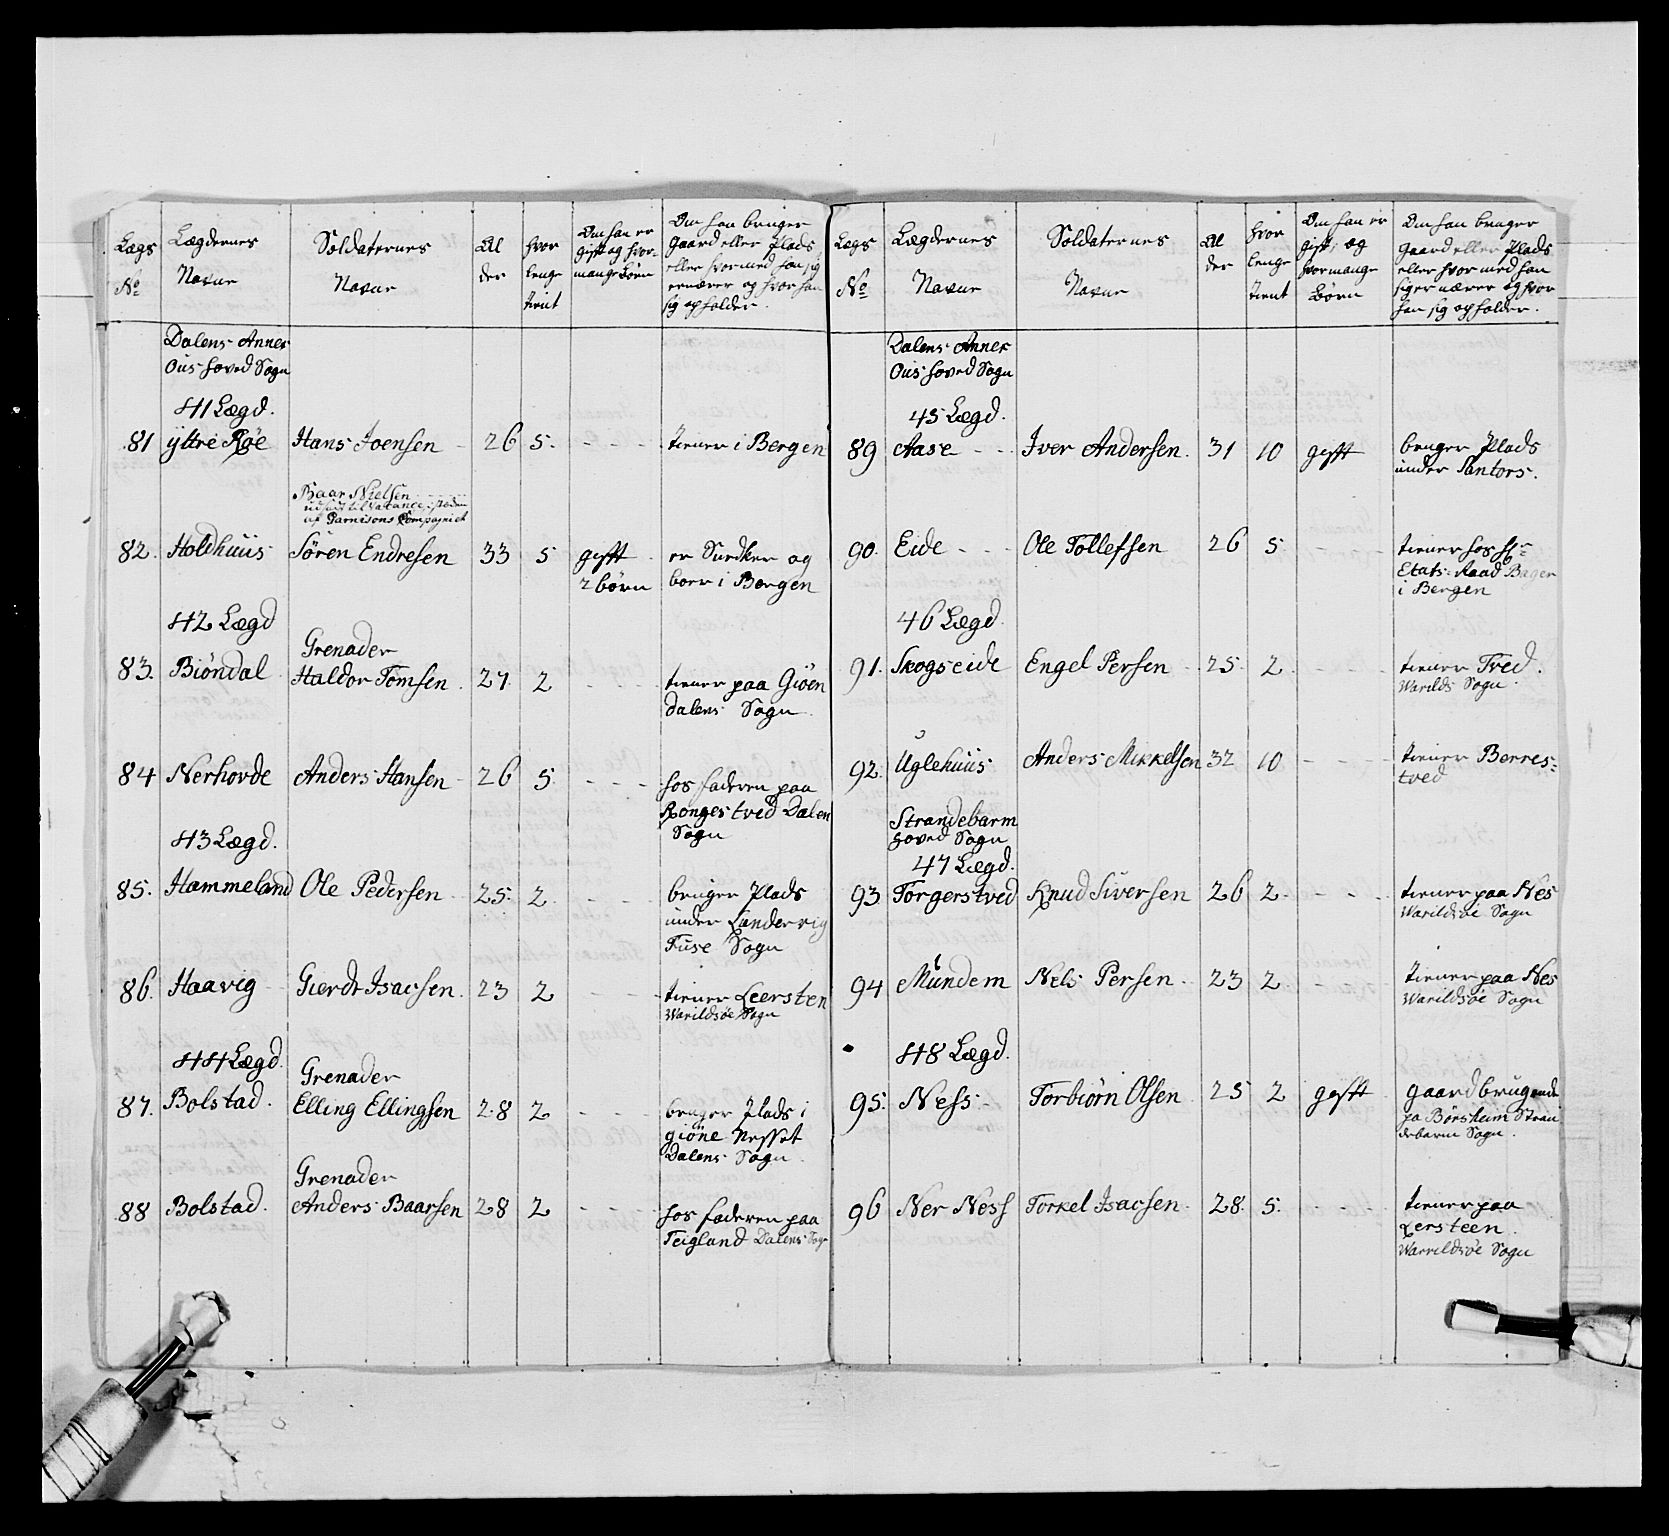 Lægs
No
Lægdernes
Navne
Soldaternes
Navne
Al
der
hvor
lenge
tient
Om han er
gift og hvor-
mange Börn
Om han bruger
gaard eller Plads
eller hvormed han sig
ernærer og hvor han
sig opholder.
Dalens Annex
Ous hoved Sogn
41 Lægd.
81 ÿttre Røe Hans Joensen 26 5. - - - tiener i Bergen
Baar Nielsen
udsat til Vacance, i steden
af Garnisons Compagniet
82. Holdhuus Sören Endresen 33 5 gifft er Snedker og
2 börn boer i Bergen
42 Lægd
Grenader
83. Biöndal Haldor Tomsen 27. 2 - - - tiener paa Giöen
Dalens Sogn
84 Nerhovde Anders Hansen 26 5 - - - hos faderen paa
Rongestved Dalen
Sogn
43 Lægd.
85. Hammeland Ole Pedersen 25. 2 - - - bruger Plads
under Lundervig
Fuse Sogn
86. Haavig Gierdt Isacsen. 23 2 - - - tiener Leersteen
Warildsöe Sogn
44 Lægd.
Grenader
87. Bolstad. Elling Ellingsen 28 2 - - - bruger Plads i
giöne Nesset
Dalens Sogn
Grenader
88 Bolstad. Anders Baarsen 28 2 - - - hos faderen paa
Teigland Dalens Sogn
Lægs
No
Lægdernes
Navne
Soldaternes
Navne
Al
der
hvor
lenge
tient
Om han er
gift og
hvormange
Börn
Om han bruger
gaard eller Plads
eller hvormed han
sig ernærer og hvor
han sig opholder.
Dalens Annex
Ous hoved Sogn
45 Lægd.
89 Aase - - - Iver Andersen. 31 10 gifft bruger Plads
under Santors.
90. Eide - - - Ole Tollefsen 26 5 - - tiener hos Hr
Etats-Raad Bager
i Bergen
46 Lægd
91. Skogseide Engel Persen 25. 2 - - - tiener Tved.
Warilds Sogn.
92. Uglehuus Anders Mikkelsen 32 10 - - - tiener Berres-
tved
Strandebarm
hoved Sogn
47 Lægd.
93 Torgerstved Knud Siversen 26 2 - - - tiener paa Nes
Warildsöe Sogn
94 Mundem Nels Persen. 23 2 - tiener paa Nes
Warildsöe Sogn
48 Lægd.
95. Ness Torbiörn Olsen 25 2 gifft gaardbrugende
paa Börsheim Stran
debarm Sogn.
96 Ner Ness Torkel Isacsen. 28. 5. - - - tiener paa
Lersteen.
Warrildsöe Sogn